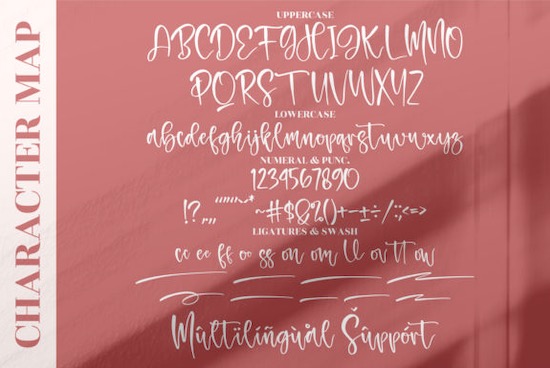 CHARACTER MAP
UPPERCASE
ABCDEFGHIJKLMNO
PQRSTUVWXYZ
LOWERCASE
abcdefghijklmnopqrstuvwxyz
NUMERAL & PUNC.
1234567890
!?.,„“”‘’^* ~#$&%()+-±÷/:;<=>
LIGATURES & SWASH
cc ee ff oo ss on om ll ov tt ow
Mûltïlíñgùål Šûppórt